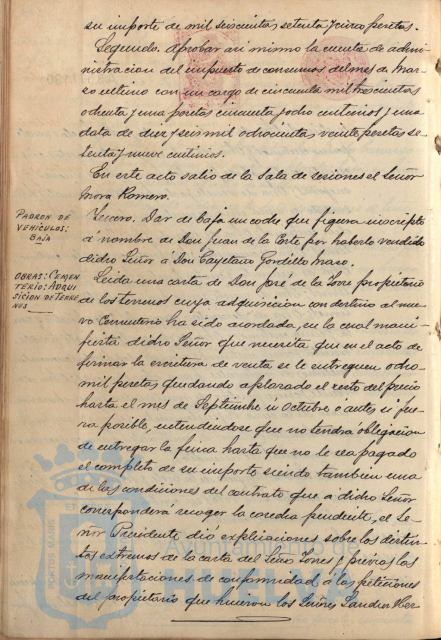 su importe de mil seiscientas setenta y cinco pesetas.
Segundo. Aprobar asi mismo la cuenta de admi-
nistracion del impuesto de consumos del mes de Mar-
zo ultimo con un cargo de cincuenta mil trescientas
ochenta y una pesetas cincuenta y ocho centimos y una
data de diez y seis mil ochocientas veinte pesetas se-
tenta y nueve centimos.
En este acto salio de la Sala de Sesiones el Señor
Mora Romero.
PADRON DE
VEHICULOS:
BAJA
Tercero. Dar de baja un coche que figura inscripto
á nombre de Don Juan de la Corte por haberlo vendido
dicho Señor á Don Cayetano Gordillo Mazo.
OBRAS: CEMEN
TERIO: ADQUI
SICION DE TERRE
NOS
Leida una carta de Don José de la Torre propietario
de los terrenos cuya adquisicion con destino al nue-
vo Cementerio ha sido acordada, en la cual mani-
fiesta dicho Señor que necesita que en el acto de
firmar la escritura de venta se le entreguen ocho
mil pesetas quedando aplazado el resto del precio
hasta el mes de Septiembre ú Octubre ó antes si fue-
ra posible, entendiendose que no tendrá obligacion
de entregar la finca hasta que no le sea pagado
el completo de su importe siendo tambien una
de las condiciones del contrato que a dicho Señor
corresponderá recoger la cosecha pendiente, el Se-
ñor Presidente dió explicaciones sobre los distin-
tos extremos de la carta del Señor Torres y previas las
manifestaciones de conformidad á las peticiones
del propietario que hicieron los Señores Sanchez Her